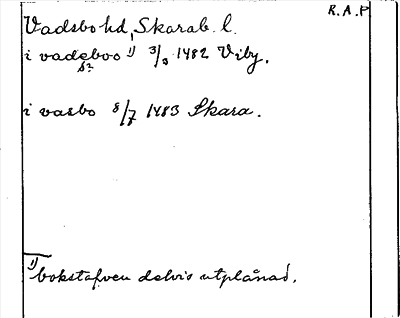 R.A.P
Vadsbo hd, Skarab. l.
i vadeboo ¹⁾ 3/9 1482 Viby.
s?
i vasbo 8/7 1483 Skara.
¹⁾ bokstafven delvis utplånad.